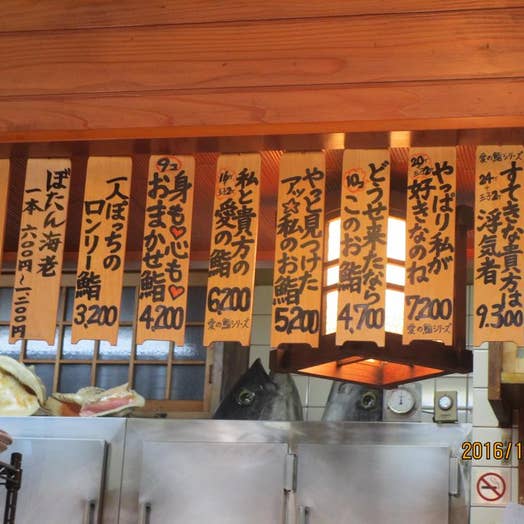 愛の鮨シリーズ
すてきな貴方は
24コ
浮気者
9.300
やっぱり私が
20コ
好きなのね
7,200
愛の鮨シリーズ
どうせ来たなら
10コ
このお鮨
4,700
やと見つけた
アッ☆私のお鮨
5,200
私と貴方の
16コ
愛の鮨
6,200
愛の鮨シリーズ
9コ
身も♥心も♥
おまかせ鮨
4,200
一人ぼっちの
ロンリー鮨
3,200
ぼたん海老
一本 六〇〇円〜一二〇〇円
2016/1